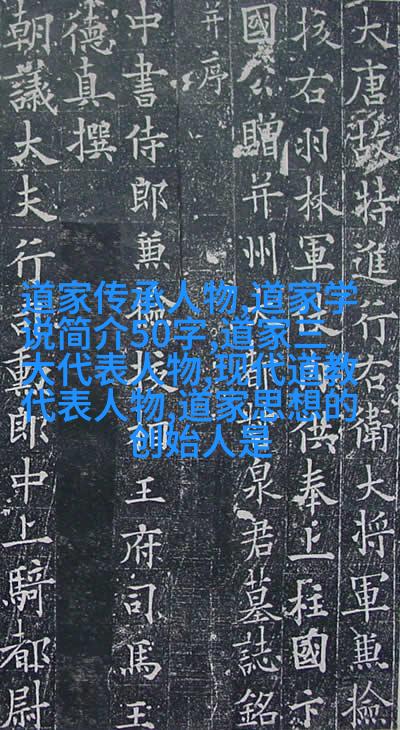 道家传承人物,道家学
说简介50字,道家三
大代表人物,现代道教
代表人物,道家思想的
创始人是
大唐故特進行右衛大將軍兼撿
挍右羽林軍供奉上柱國卞
國公贈并州大都泉君墓誌銘
并序
中書侍郎兼撿挍相王府司馬王
德真撰
朝議大夫行司勳郎中上騎都尉